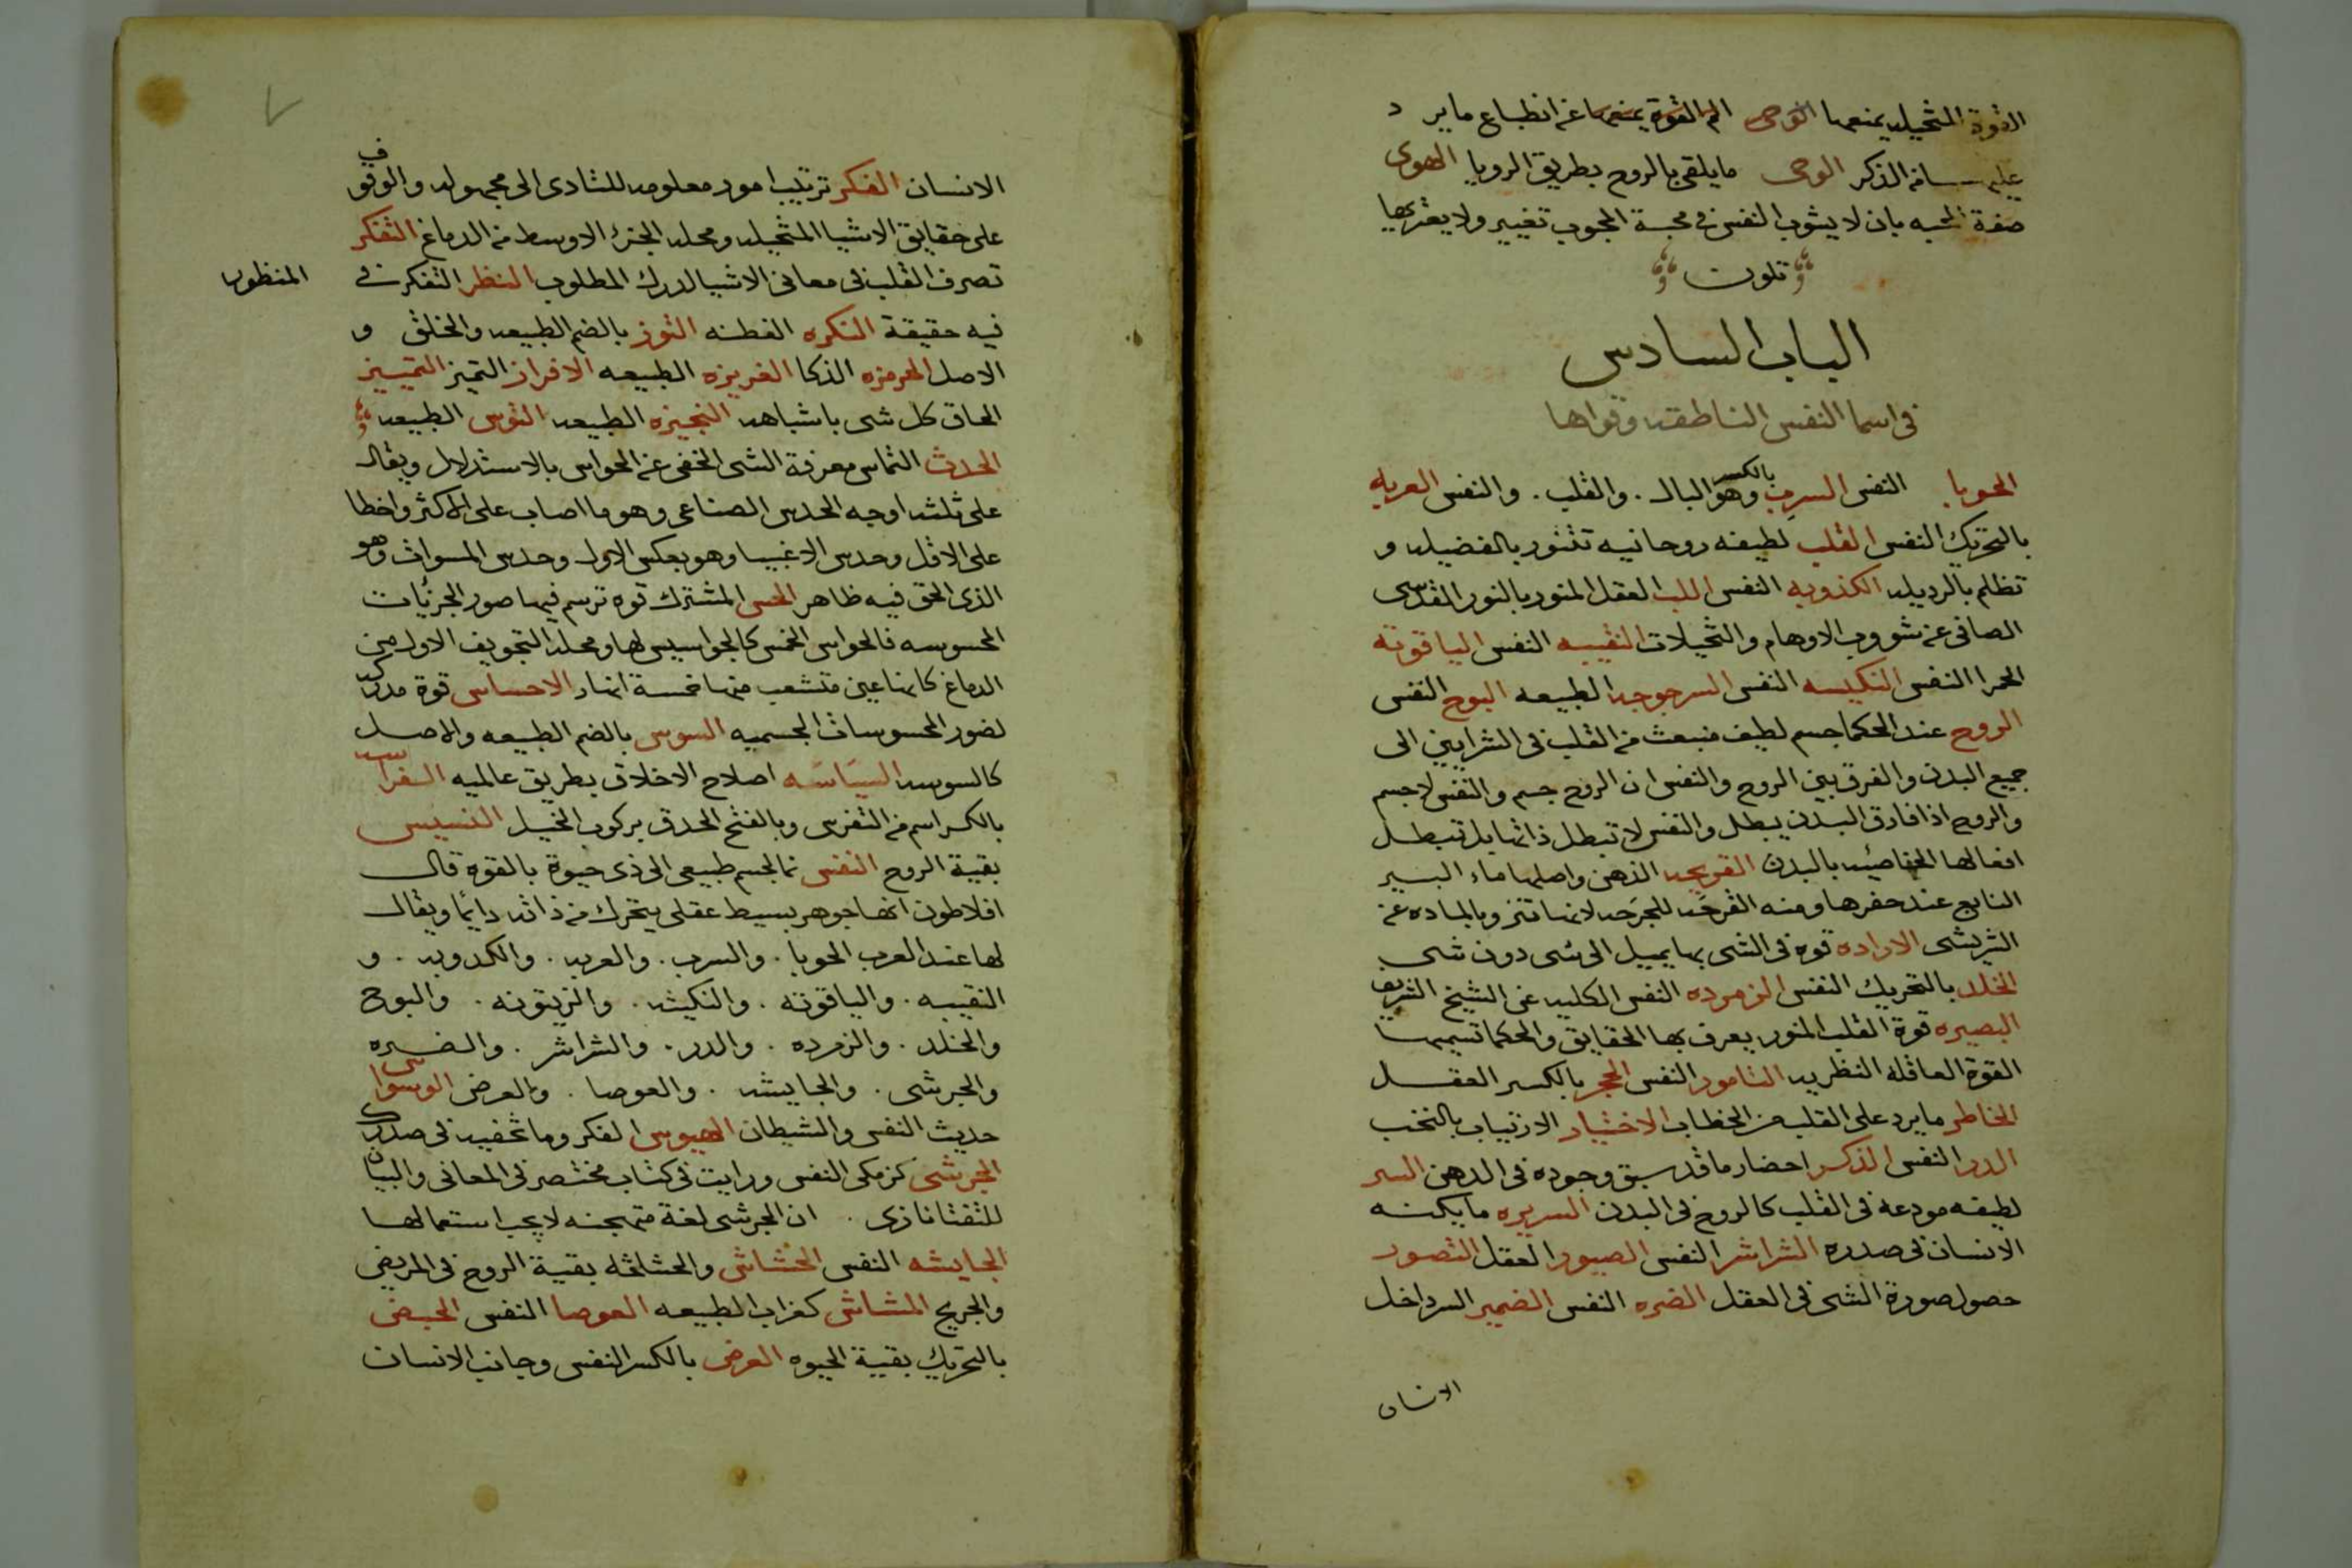 القوة المتخيله يمنعها الوحى الم القوة يمنعها عن انطباع ما يرد
عليه من الذكر الوحى ما يلقى بالروح بطريق الرويا الهوى
صفة المحبه بان لا يشوب النفس فى محبة المحبوب تغيير ولا يعتريها
تلون
الباب السادس
فى اسما النفس الناطقه وقواها
الحوبا النفس السرب بالكسر وهو البال . والقلب . والنفس العربه
بالتحريك النفس القلب لطيفه روحانيه تتنور بالفضيله و
تظلم بالرديله الكذوبه النفس اللب العقل المنور بالنور القدسى
الصافى عن شوروب الاوهام والتخيلات النقيبه النفس الياقوته
الحمرا النفس النكيسه النفس السرجوجه الطبيعه البوح النفس
الروح عند الحكما جسم لطيف منبعث من القلب فى الشرايين الى
جميع البدن والفرق بين الروح والنفس ان الروح جسم والنفس لا جسم
والروح اذا فارق البدن يبطل والنفس لا تبطل ذاتها بل تبطل
افعالها الخاصيه بالبدن القريحه الذهن واصلها ماء البير
النابع عند حفرها ومنه القرحه للجرحه لانها تنز وبالماده عن
الشريشى الاراده قوة فى الشى بها يميل الى شى دون شى
الخلد بالتحريك النفس الزمرده النفس الكليه عن الشيخ الشريف
البصيره قوة القلب المنور يعرف بها الحقايق والحكما تسميها
القوة العاقله النظريه التامور النفس الحجر بالكسر العقل
الخاطر ما يرد على القلب من الخطاب الاختيار الارتياب بالنخب
الدر النفس الذكر احضار ما قد سبق وجوده فى الدهن السر
لطيفه مودعة فى القلب كالروح فى البدن السريره ما يكنه
الانسان فى صدره الشراشر النفس الصيور العقل التصور
حصول صورة الشى فى العقل الضره النفس الضمير السر داخل
الانسان
الانسان الفكر ترتيب امور معلومه للتادى الى مجهوله والوقوف
على حقايق الاشيا المتخيله ومحله الجزء الاوسط من الدماغ التفكر
تصرف القلب فى معانى الاشيا لدرك المطلوب النظر التفكر فى
المنظور
فيه حقيقة النكره الفطنه التوز بالضم الطبيعه والخلق و
الاصل الحرمزه الذكا الغريزه الطبيعه الافراز التميز التمييز
الحاق كل شى باشباهه النجيزه الطبيعه التوس الطبيعه
الحدث التماس معرفة الشى الخفى عن الحواس بالاستدلال ويقال
على ثلثه اوجه الحدس الصناعى وهو ما اصاب على الاكثر واخطا
على الاقل وحدس الاغبيا وهو بعكس الاول وحدس المسوات وهو
الذى الحق فيه ظاهر الحس المشترك قوه ترسم فيها صور الجزئيات
المحسوسه فالحواس الخمس كالجواسيس لها ومحله التجويف الاول من
الدماغ كانها عين متشعب منها خمسة انهار الاحساس قوة مدركه
لضور المحسوسات الجسميه السوس بالضم الطبيعه والاصل
كالسوسه السياسه اصلاح الاخلاق بطريق عالميه الفراسه
بالكسر اسم من التفرس وبالفتح الحدق بركوب الخيل النسيس
بقية الروح النفس نما لجسم طبيعى الى ذى حيوة بالقوة قال
افلاطون انها جوهر بسيط عقلى يتحرك من ذاته دائما ويقال
لها عند العرب الحوبا . والسرب . والعربه . والكدوبه . و
النقيبه . والياقوته . والنكيشه . والزيتونه . والبوح
والخلد . والزمرده . والدر . والشراشر . والضره
والجرشى . والجايشه . والعوصا . والعرض الوسواس
حديث النفس والشيطان الهيوس الفكر وما تخفيه فى صدرك
الجرشى كزمكى النفس ورايت فى كتاب مختصر فى المعانى والبيان
للتفتازانى . ان الجرشى لغة متهجنه لا يجب استعمالها
الجايشه النفس الحشاش والحشاشه بقية الروح فى المريض
والجريح المشاش كغراب الطبيعه العوصا النفس الحبض
بالتحريك بقية الحيوه العرض بالكسر النفس وجانب الانسان